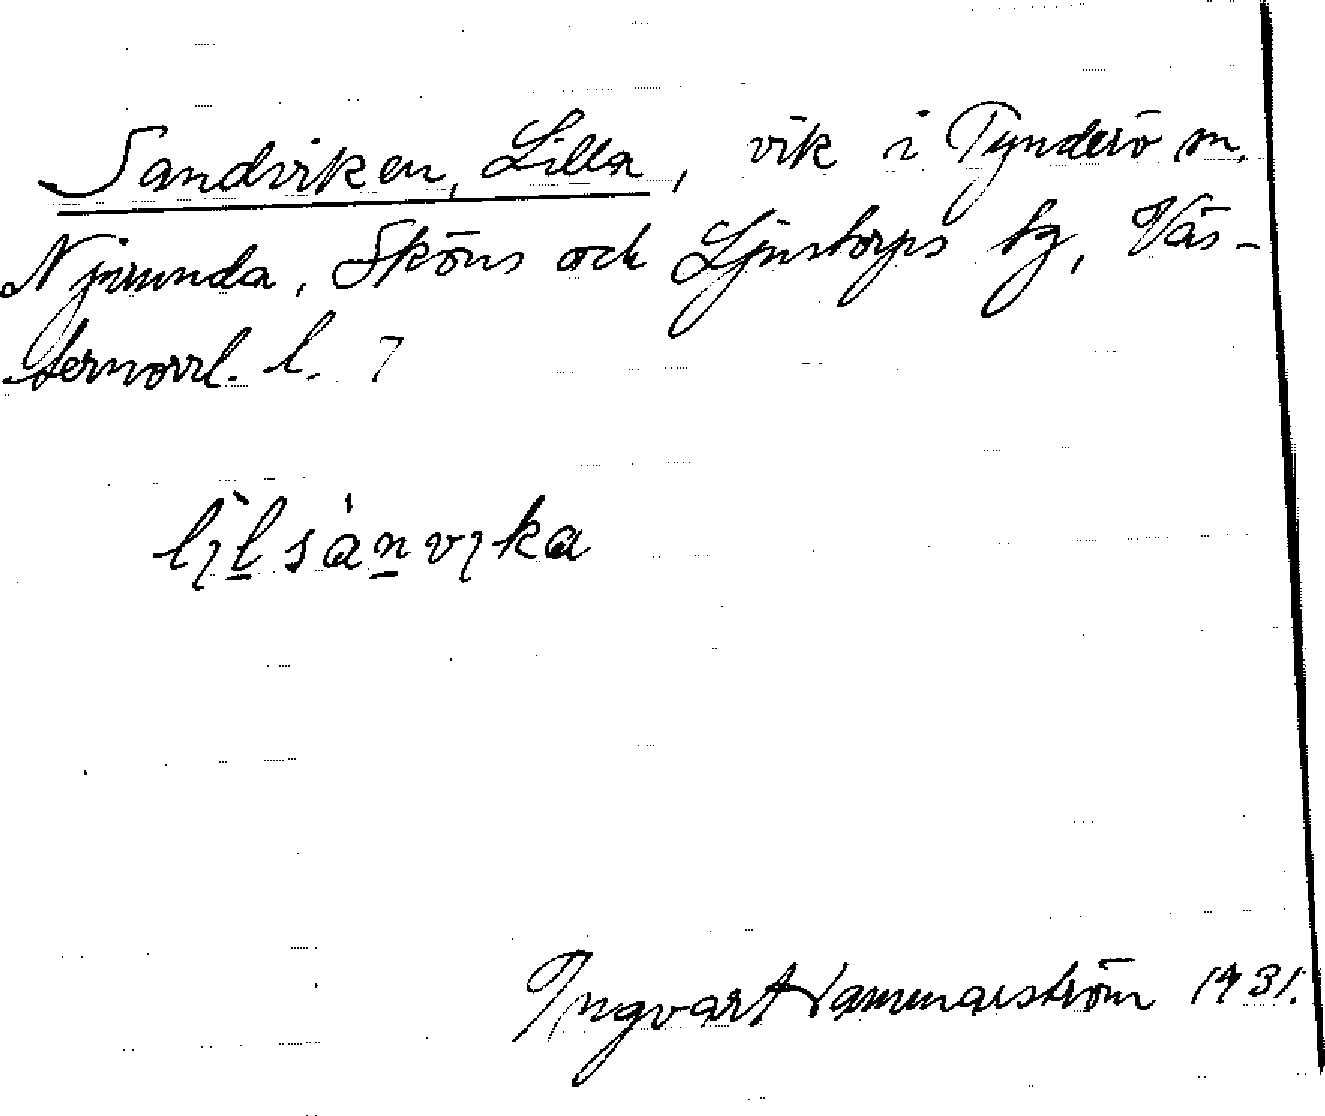 Sandviken, Lilla, vik i Tynderö sn,
Njurunda, Sköns och Ljustorps tg, Väs-
ternorrl. l. 7
lịl̠sán̠vịka
Ingvar Hammarström 1931.